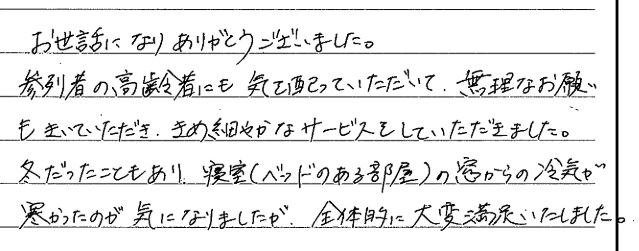 お世話になりありがとうございました。
参列者の高齢者にも気を配っていただいて、無理なお願い
もきいていただき、きめ細やかなサービスをしていただきました。
冬だったこともあり、寝室(ベッドのある部屋)の窓からの冷気が
寒かったのが気になりましたが、全体的に大変満足いたしました。